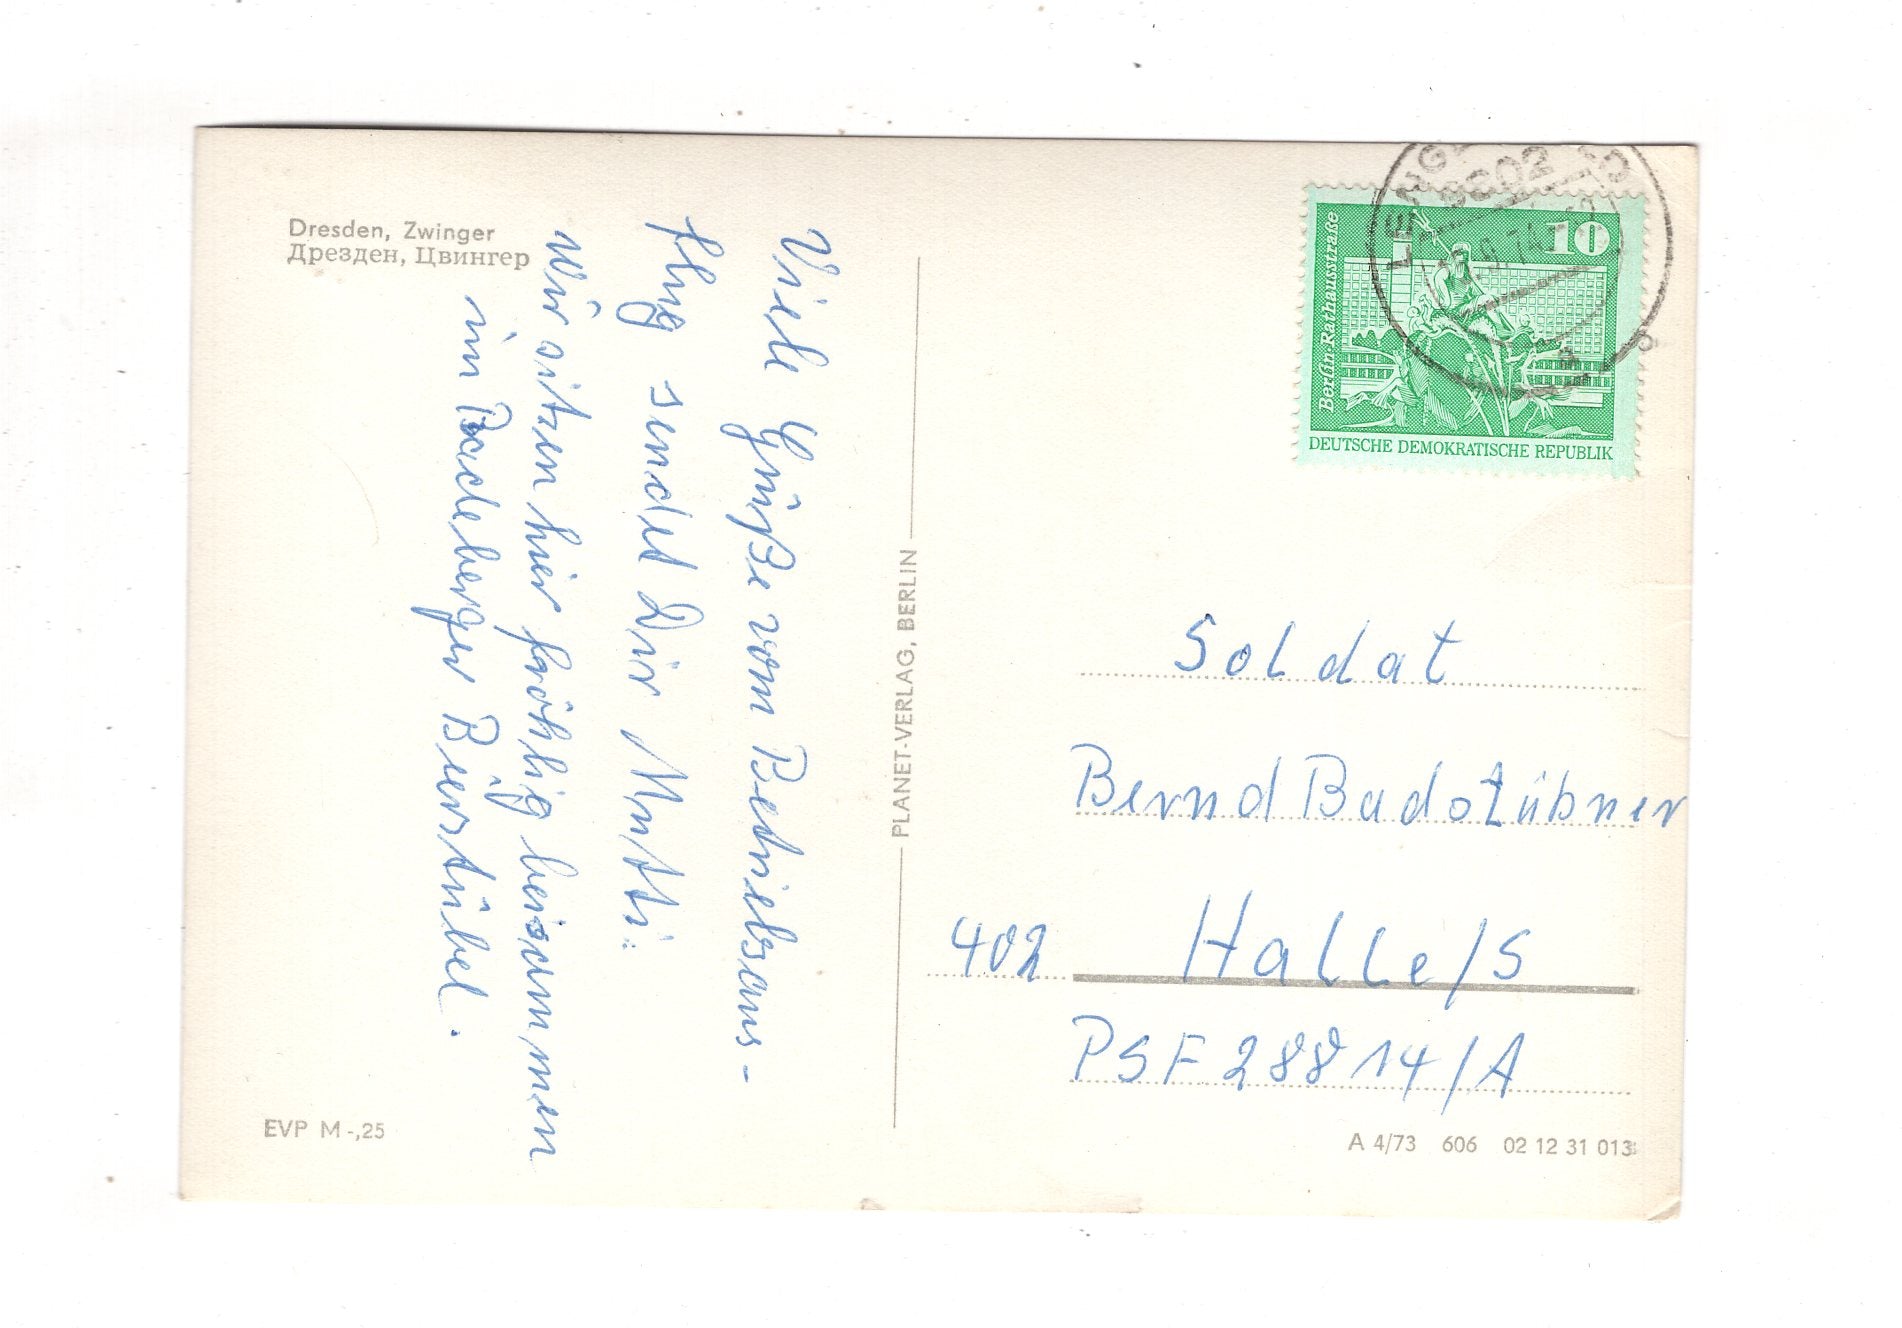 Dresden, Zwinger
Дрезден, Цвингер
Viele Grüße vom Betriebsaus-
flug sendet Dir Mutti.
Wir sitzen hier fröhlig beisammen
im Radeberger Bierstübel.
EVP M -,25
PLANET-VERLAG, BERLIN
10
Berlin Rathausstraße
DEUTSCHE DEMOKRATISCHE REPUBLIK
Soldat
Bernd
402 Halle/S
PSF 28814/A
A 4/73 606 02 12 31 013